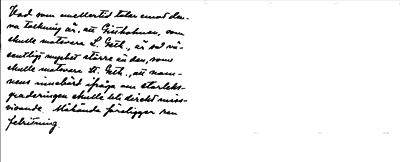 Vad som emellertid talar emot den-
na tolkning är, att Fiskholmen, som
skulle motsvara L. Geth., är så vä-
sentligt mycket större än den, som
skulle motsvara St. Geth., att nam-
nens innebörd ifråga om storleks-
graderingen skulle bli direkt miss-
visande. Möjligen föreligger ren
felritning.